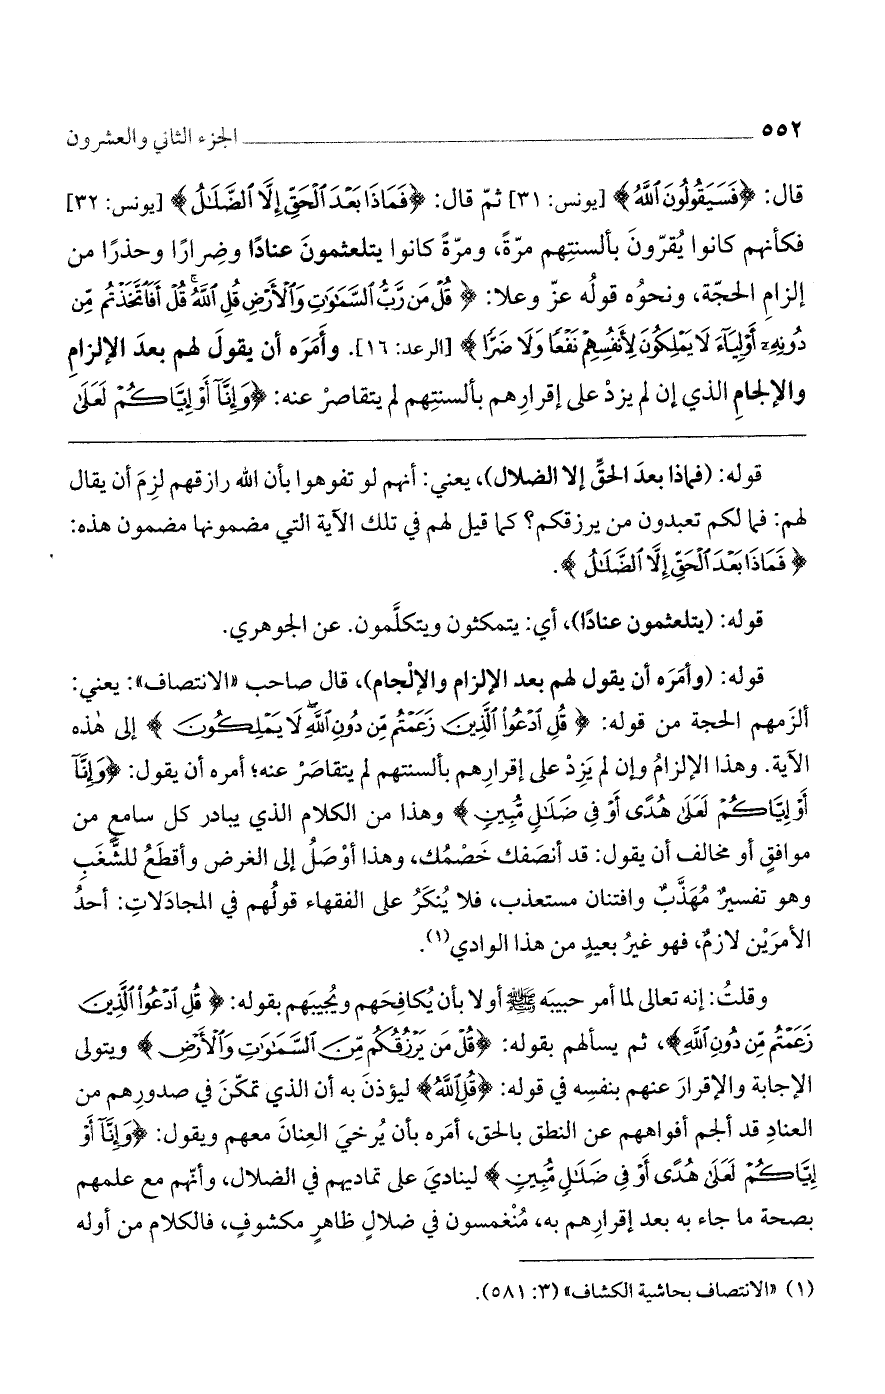 ٥٥٢ الجزء الثاني والعشرون
قال: ﴿فَسَيَقُولُونَ ٱللَّهُ﴾ [يونس: ٣١] ثمّ قال: ﴿فَمَاذَا بَعْدَ ٱلْحَقِّ إِلَّا ٱلضَّلَٰلُ﴾ [يونس: ٣٢]
فكأنهم كانوا يُقرّونَ بألسنتِهم مرّةً، ومرّةً كانوا يتلعثمونَ عنادًا وضِرارًا وحذرًا من
إلزامِ الحجّة، ونحوُه قولُه عزّ وعلا: ﴿قُلْ مَن رَّبُّ ٱلسَّمَٰوَٰتِ وَٱلْأَرْضِ قُلِ ٱللَّهُ ۚ قُلْ أَفَٱتَّخَذْتُم مِّن
دُونِهِۦٓ أَوْلِيَآءَ لَا يَمْلِكُونَ لِأَنفُسِهِمْ نَفْعًا وَلَا ضَرًّا﴾ [الرعد: ١٦]. وأَمَرَه أن يقولَ لهم بعدَ الإلزامِ
والإلجامِ الذي إن لم يزدْ على إقرارِهم بألسنتِهم لم يتقاصرْ عنه: ﴿وَإِنَّآ أَوْ إِيَّاكُمْ لَعَلَىٰ
قوله: (فماذا بعدَ الحقِّ إلا الضلال)، يعني: أنهم لو تفوهوا بأن الله رازقهم لزِمَ أن يقال
لهم: فما لكم تعبدون من يرزقكم؟ كما قيل لهم في تلك الآية التي مضمونها مضمون هذه:
﴿فَمَاذَا بَعْدَ ٱلْحَقِّ إِلَّا ٱلضَّلَٰلُ﴾.
قوله: (يتلعثمون عنادًا)، أي: يتمكثون ويتكلَّمون. عن الجوهري.
قوله: (وأمَرَه أن يقول لهم بعد الإلزام والإلْجام)، قال صاحب «الانتصاف»: يعني:
ألزَمهم الحجة من قوله: ﴿قُلِ ٱدْعُوا۟ ٱلَّذِينَ زَعَمْتُم مِّن دُونِ ٱللَّهِ ۖ لَا يَمْلِكُونَ﴾ إلى هٰذه
الآية. وهذا الإلزامُ وإن لم يَزِدْ على إقرارِهم بألسنتهم لم يتقاصَرْ عنه؛ أمره أن يقول: ﴿وَإِنَّآ
أَوْ إِيَّاكُمْ لَعَلَىٰ هُدًى أَوْ فِى ضَلَٰلٍ مُّبِينٍ﴾ وهذا من الكلام الذي يبادر كل سامعٍ من
موافقٍ أو مخالف أن يقول: قد أنصَفك خَصْمُك، وهذا أوْصَلُ إلى الغرض وأقطَعُ للشَّغَبِ
وهو تفسيرٌ مُهَذَّبٌ وافتنان مستعذب، فلا يُنكَرُ على الفقهاء قولُهم في المجادَلاتِ: أحدُ
الأمرَيْن لازمٌ، فهو غيرُ بعيدٍ من هذا الوادي(١).
وقلتُ: إنه تعالى لما أمر حبيبَه ﷺ أولا بأن يُكافِحَهم ويُجيبَهم بقوله: ﴿قُلِ ٱدْعُوا۟ ٱلَّذِينَ
زَعَمْتُم مِّن دُونِ ٱللَّهِ﴾، ثم يسألهم بقوله: ﴿قُلْ مَن يَرْزُقُكُم مِّنَ ٱلسَّمَٰوَٰتِ وَٱلْأَرْضِ﴾ ويتولى
الإجابة والإقرارَ عنهم بنفسِه في قوله: ﴿قُلِ ٱللَّهُ﴾ ليؤذنَ به أن الذي تمكّنَ في صدورِهم من
العنادِ قد ألجم أفواههم عن النطق بالحق، أمَره بأن يُرخيَ العِنانَ معهم ويقول: ﴿وَإِنَّآ أَوْ
إِيَّاكُمْ لَعَلَىٰ هُدًى أَوْ فِى ضَلَٰلٍ مُّبِينٍ﴾ لينادِيَ على تماديهم في الضلال، وأنّهم مع علمهم
بصحة ما جاء به بعد إقرارِهم به، مُنْغمسون في ضلالٍ ظاهرٍ مكشوفٍ، فالكلام من أوله
(١) «الانتصاف بحاشية الكشاف» (٣: ٥٨١).